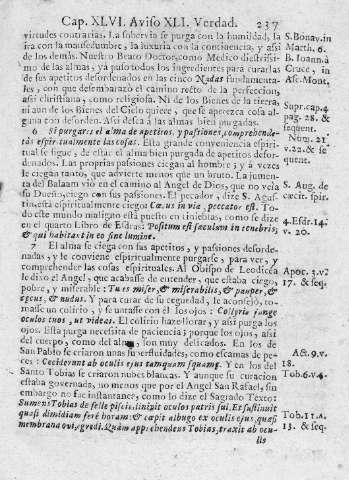 Cap. XLVI. Aviso XLI. Verdad. 237
virtudes contrarias. La sobervia se purga con la humildad, la
ira con la mansedumbre, la luxuria con la continencia, y assi
de los demàs. Nuestro Beato Doctor, como Medico diestrissi-
mo de las almas, yà puso todos los ingredientes para curarlas
de sus apetitos desordenados en las cinco Nadas fundamenta-
les, con que desembarazò el camino recto de la perfeccion,
assi christiana, como religiosa. Ni de los Bienes de la tierra,
ni aun de los Bienes del Cielo quiere, que se apetezca cosa algu-
na con desorden. Assi dexa à las almas bien purgadas.
6 Si purgares el alma de apetitos, y passiones, comprehende-
ràs espiritualmente las cosas. Esta grande conveniencia espiri-
tual se sigue, de estar el alma bien purgada de apetitos desor-
denados. Las proprias passiones ciegan al hombre; y à vezes
le ciegan tanto, que advierte menos que un bruto. La jumen-
ta de Balaam viò en el camino al Angel de Dios, que no veìa
su Dueño, ciego con sus passiones. El pecador, dize S. Agus-
tin, està espiritualmente ciego: Cæcus in via, peccator est. To-
do este mundo maligno està puesto en tinieblas, como se dize
en el quarto Libro de Esdras: Positum est sæculum in tenebris;
& qui habitant in eo sine lumine.
7 El alma se ciega con sus apetitos, y passiones desorde-
nadas, y le conviene espiritualmente purgarse, para ver, y
comprehender las cosas espirituales. Al Obispo de Leodicea
le dixo el Angel, que acabasse de entender, que estaba ciego,
pobre, y miserable: Tu es miser, & miserabilis, & pauper, &
cæcus, & nudus. Y para curar de su ceguedad, le aconsejò, to-
masse un colirio, y se untasse con èl los ojos: Collyrio junge
oculos tuos, ut videas. El colirio haze llorar, y assi purga los
ojos. Esta purga necessita de paciencia; porque los ojos, assi
del cuerpo, como del alma, son muy delicados. En los de
San Pablo se criaron unas superfluidades, como escamas de pe-
ces: Ceciderunt ab oculis ejus tamquam squamæ. Y en los del
Santo Tobias se criaron nubes blancas. Y aunque su curacion
estaba governada, no menos que por el Angel San Rafael, sin
embargo no fue instantanea, como lo dize el Sagrado Texto:
Sumens Tobias de felle piscis, linivit oculos patris sui. Et sustinuit
quasi dimidiam ferè horam: & cœpit albugo ex oculis ejus, quasi
membrana ovi, egredi. Quàm apprehendens Tobias, traxit ab ocu-
lis
S. Bonav. in
Matth. 6.
B. Ioann. à
Cruce, in
Asc. Mont.
Supr. cap. 4
pag. 28. &
sequent.
Num. 21
v. 22. & se
quent.
S. Aug. de
cæcit. spir.
4. Esdr. 14.
v. 20.
Apoc. 3. v.
17. & seq.
Act. 9. v.
18.
Tob. 6. v. 4.
Tob. 11. à
13. & seq.